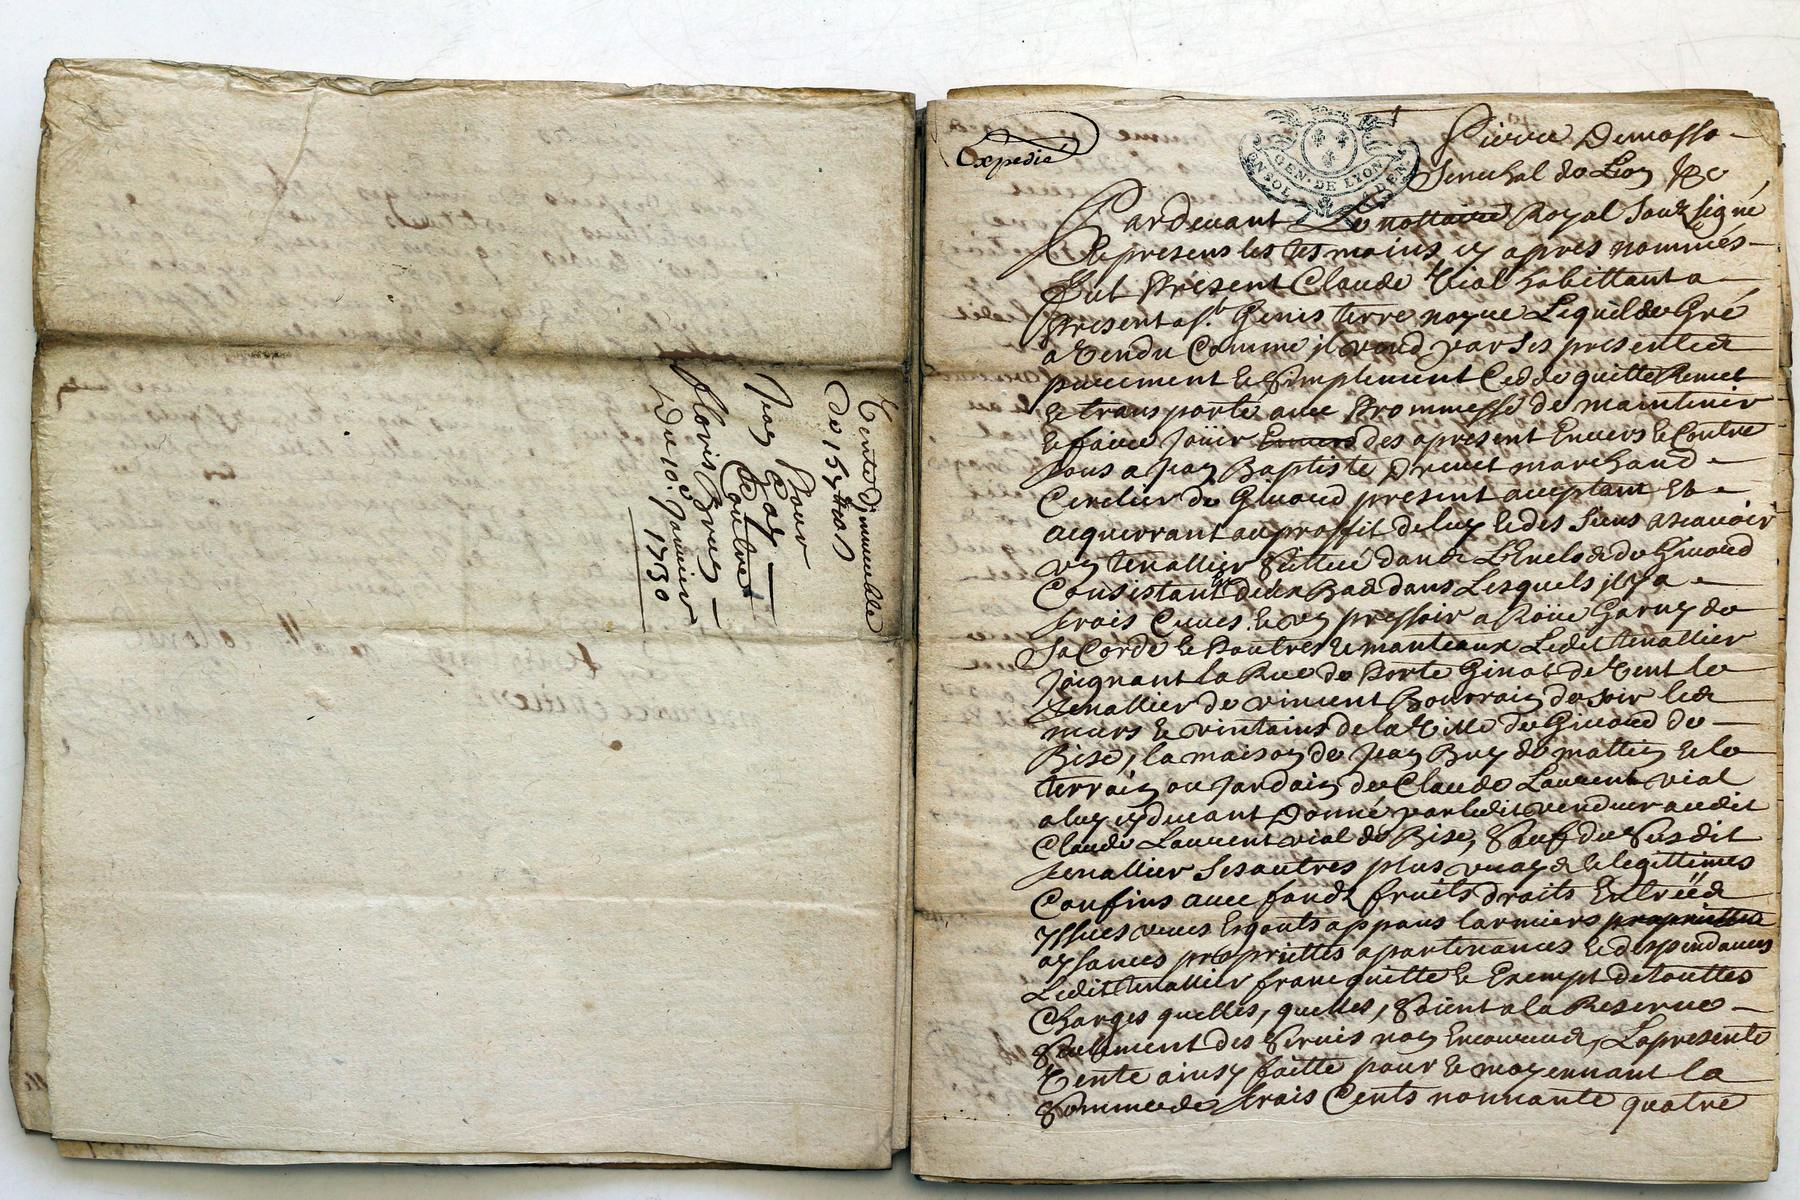 Vente d'immeuble
De 157# 10 s
Pour
Jean
Contre
Du 10e Janvier
1730
Expedié
GEN. DE LYON
Pierre Demasso
Senechal de Lion &c
Pardevant Le nottaire Royal Soubsigné
Et presens les tesmoins cy apres nommés
fut Présent Claude Vial habittant a
present a St. Genis terre noyre Lequel de Gré
a Vendu Comme il vend par ses presentes
purement et Simplement Cedde quitte Remet
et transporte avec Prommesse de maintenir
et faire Joüir Envers des apresent Envers et Contre
tous a Jean Baptiste Drevet marchand
Cerclier de Givord present aceptant Et
acquerrant au proffit de luy et des Siens ascavoir
un tenallier Scittué dans L'Enclos de Givord
Consistant en deux Bas dans Lesquels il y a
trois Cuves et un pressoir a Roüe Garny de
Sa Corde et Poutres et manteaux Ledit tenallier
Joignant la Rue de Porte Ginot de Vent le
tenallier de vincent de soir les
murs et vintains de la Ville de Givord de
Bise, la maison de Jean Buy de mattin et le
terrain ou Jardain de Claude Laurent vial
a luy cydevant Donné par ledit vendeur audit
Claude Laurent vial de Bise, Sauf du Susdit
tenallier Ses autres plus vrays et legittimes
Confins avec fonds fruits droits Entrées
yssues vues Esgouts appans larmiers propriettés
aysances proprietés apartenances et despendances
Ledit tenallier franc quitte et Exempt de touttes
Charges quelles, quelles, Soient a la Reserve
Seulement des Servis non Encourrus, La presente
Vente ainsy faitte pour et moyennant la
Somme de trois Cents nonnante quatre